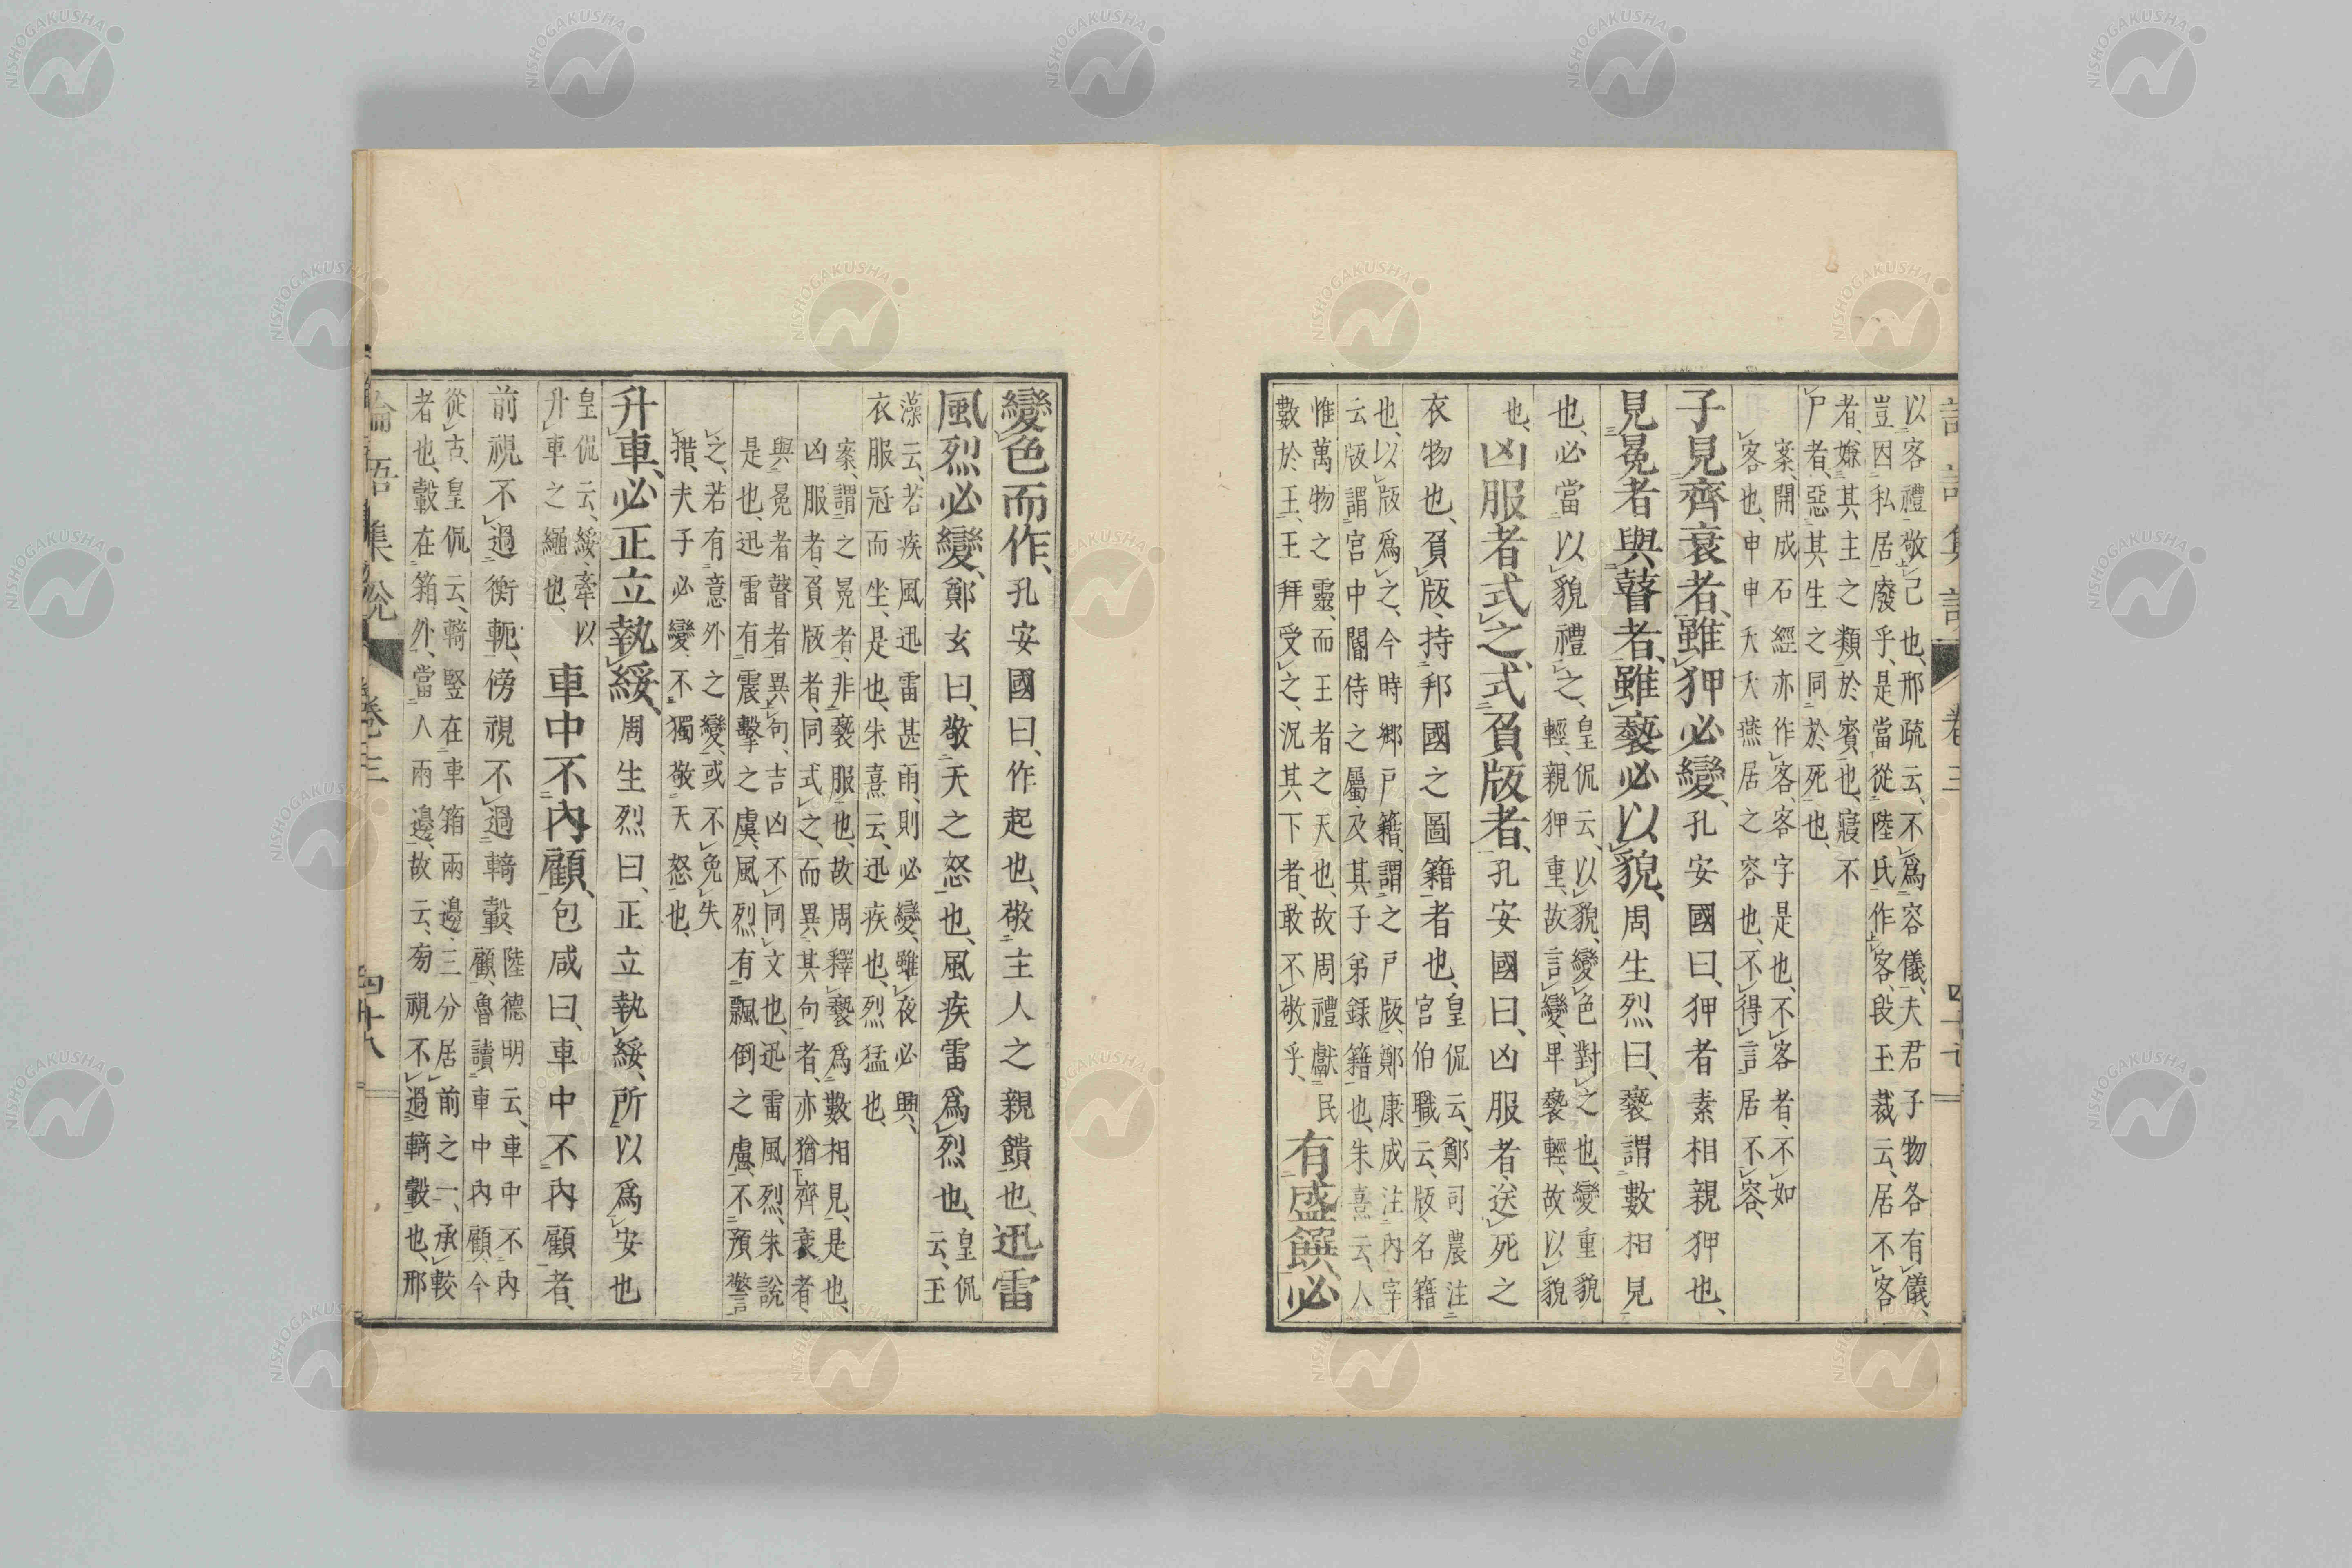 以客禮敬己也、邢疏云、不爲容儀、夫君子物各有儀、
豈因私居廢乎、是當從陸氏作客、段玉裁云、居不客
者、嫌其主之類於賓也、寢不
尸者、惡其生之同於死也、
案、開成石經亦作客、客字是也、不客者、不如
客也、申申夭夭燕居之容也、不得言居不容、
子見齊衰者、雖狎必變、孔安國曰、狎者素相親狎也、
見冕者與瞽者、雖褻必以貌、周生烈曰、褻謂數相見
也、必當以貌禮之、
皇侃云、以貌、變色對之也、變重貌
輕、親狎重、故言變、卑褻輕、故以貌
也、凶服者式之、式負版者、孔安國曰、凶服者、送死之
衣物也、負版、持邦國之圖籍者也、
皇侃云、鄭司農注
宮伯職云、版、名籍
也、以版爲之、今時鄉戶籍、謂之戶版、鄭康成注內宰
云、版謂宮中閽侍之屬及其子弟錄籍也、朱熹云、人
惟萬物之靈、而王者之天也、故周禮獻民
數於王、王拜受之、況其下者、敢不敬乎、
有盛饌、必
變色而作、孔安國曰、作起也、敬主人之親饋也、迅雷
風烈必變、鄭玄曰、敬天之怒也、風疾雷爲烈也、
皇侃
云、玉
藻云、若疾風迅雷甚雨、則必變、雖夜必興、
衣服冠而坐、是也、朱熹云、迅疾也、烈猛也、
案、謂之冕者、非褻服也、故周釋褻爲數相見、是也、
凶服者、負版者、同式之、而異其句者、亦猶齊衰者、
與冕者瞽者異句、吉凶不同文也、迅雷風烈、朱說
是也、迅雷有震擊之虞、風烈有飄倒之慮、不預警
之、若有意外之變、或不免失
措、夫子必變、不獨敬天怒也、
升車、必正立執綏、周生烈曰、正立執綏、所以爲安也
皇侃云、綏、牽以
升車之繩也、
車中不內顧、包咸曰、車中不內顧者、
前視不過衡軛、傍視不過輢轂、
陸德明云、車中不內
顧、魯讀車中內顧、今
從古、皇侃云、輢豎在車箱兩邊、三分居前之一、承較
者也、轂在箱外、當人兩邊、故云、旁視不過輢轂也、邢
論語集說 卷三 四十八